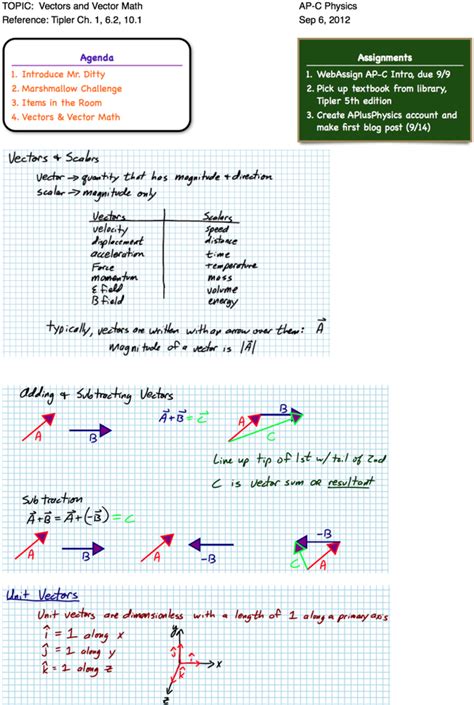 TOPIC: Vectors and Vector Math
AP-C Physics
Reference: Tipler Ch. 1, 6.2, 10.1
Sep 6, 2012
Agenda
1. Introduce Mr. Ditty
2. Marshmallow Challenge
3. Items in the Room
4. Vectors & Vector Math
Assignments
1. WebAssign AP-C Intro, due 9/9
2. Pick up textbook from library,
Tipler 5th edition
3. Create APlusPhysics account and
make first blog post (9/14)
Vectors & Scalars
Vector → quantity that has magnitude + direction
scalar → magnitude only
Vectors Scalars
velocity speed
displacement distance
acceleration time
Force temperature
momentum mass
E field volume
B field energy
typically, vectors are written with an arrow over them: A⃗
Magnitude of a vector is |A⃗|
Adding & Subtracting Vectors
A B
A⃗+B⃗=C⃗
A B C
Line up tip of 1st w/ tail of 2nd
C is vector sum or resultant
Subtraction
A⃗+B⃗ = A⃗+(-B⃗) = C
A B A -B C A -B
Unit Vectors
Unit vectors are dimensionless with a length of 1 along a primary axis
î = 1 along x
ĵ = 1 along y
k̂ = 1 along z
y
ĵ
î
k̂
x
z